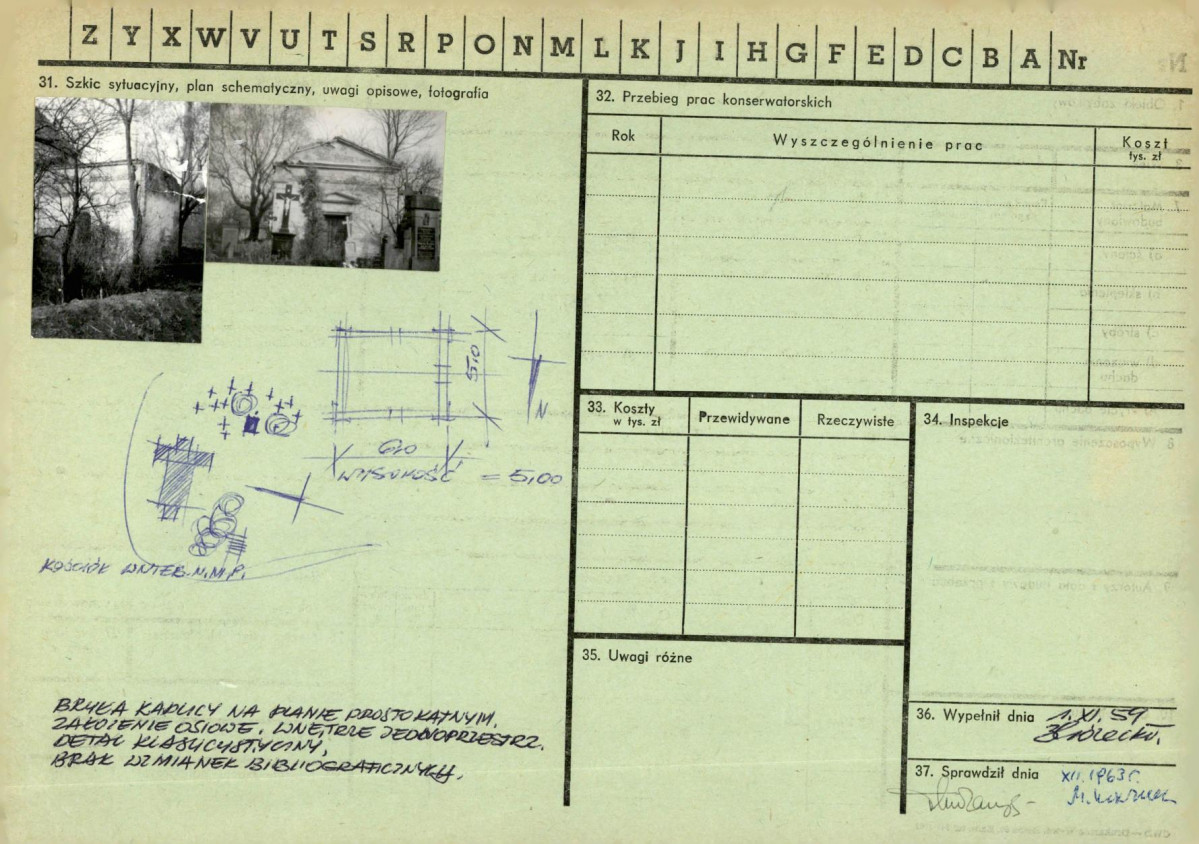 Z Y X W V U T S R P O N M L K J I H G F E D C B A Nr
31. Szkic sytuacyjny, plan schematyczny, uwagi opisowe, fotografia
5,10
N
610
WYSOKOŚĆ = 5,00
KOŚCIÓŁ WNIEB. N.M.P.
BRYŁA KAPLICY NA PLANIE PROSTOKĄTNYM.
ZAŁOŻENIE OSIOWE. WNĘTRZE JEDNOPRZESTRZ.
DETAL KLASYCYSTYCZNY.
BRAK WZMIANEK BIBLIOGRAFICZNYCH.
32. Przebieg prac konserwatorskich
Rok
Wyszczególnienie prac
Koszt
tys. zł
33. Koszty
w tys. zł
Przewidywane
Rzeczywiste
34. Inspekcje
35. Uwagi różne
36. Wypełnił dnia 1.XI.59
37. Sprawdził dnia XII.1963r.